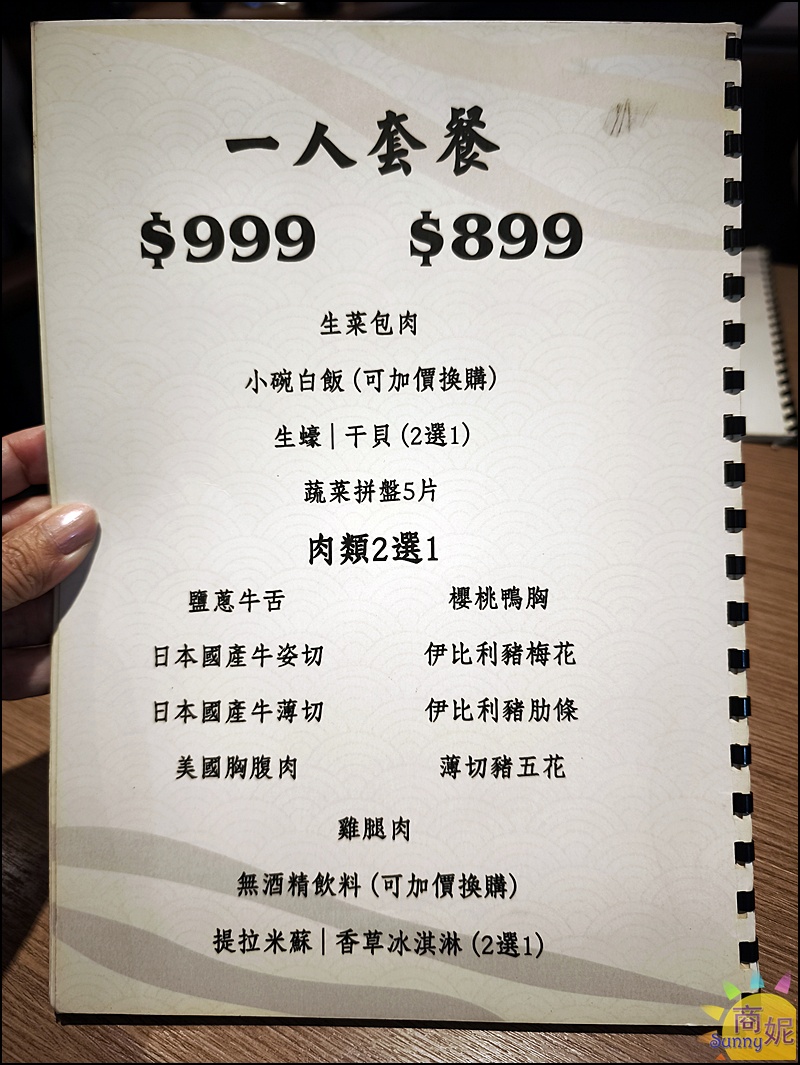 一人套餐
$999 $899
生菜包肉
小碗白飯(可加價換購)
生蠔|干貝(2選1)
蔬菜拼盤5片
肉類2選1
鹽蔥牛舌 櫻桃鴨胸
日本國產牛姿切 伊比利豬梅花
日本國產牛薄切 伊比利豬肋條
美國胸腹肉 薄切豬五花
雞腿肉
無酒精飲料(可加價換購)
提拉米蘇|香草冰淇淋(2選1)
商妮
Sunny